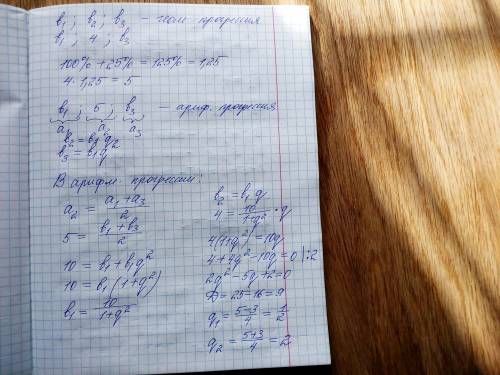 b₁ ; b₂ ; b₃ – геом прогрессия
b₁ ; 4 ; b₃
100% + 25% = 125% = 1,25
4 · 1,25 = 5
b₁ ; 5 ; b₃ – ариф. прогрессия
a₁ a₂ a₃
b₂ = b₁ q
b₃ = b₁ q²
В арифм. прогрессии:
a₂ = (a₁ + a₃)/2
5 = (b₁ + b₃)/2
10 = b₁ + b₁q²
10 = b₁ (1 + q²)
b₁ = 10/(1 + q²)
b₂ = b₁ q
4 = 10/(1 + q²) · q
4(1 + q²) = 10q
4 + 4q² – 10q = 0 | : 2
2q² – 5q + 2 = 0
D = 25 – 16 = 9
q₁ = (5 – 3)/4 = 1/2
q₂ = (5 + 3)/4 = 2